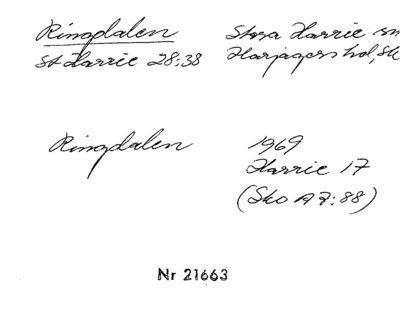 Ringdalen Stora Harrie sn
St Harrie 28:38 Harjagers hd, Sk
Ringdalen 1969
Harrie 17
(Sko A 7:88)
Nr 21663